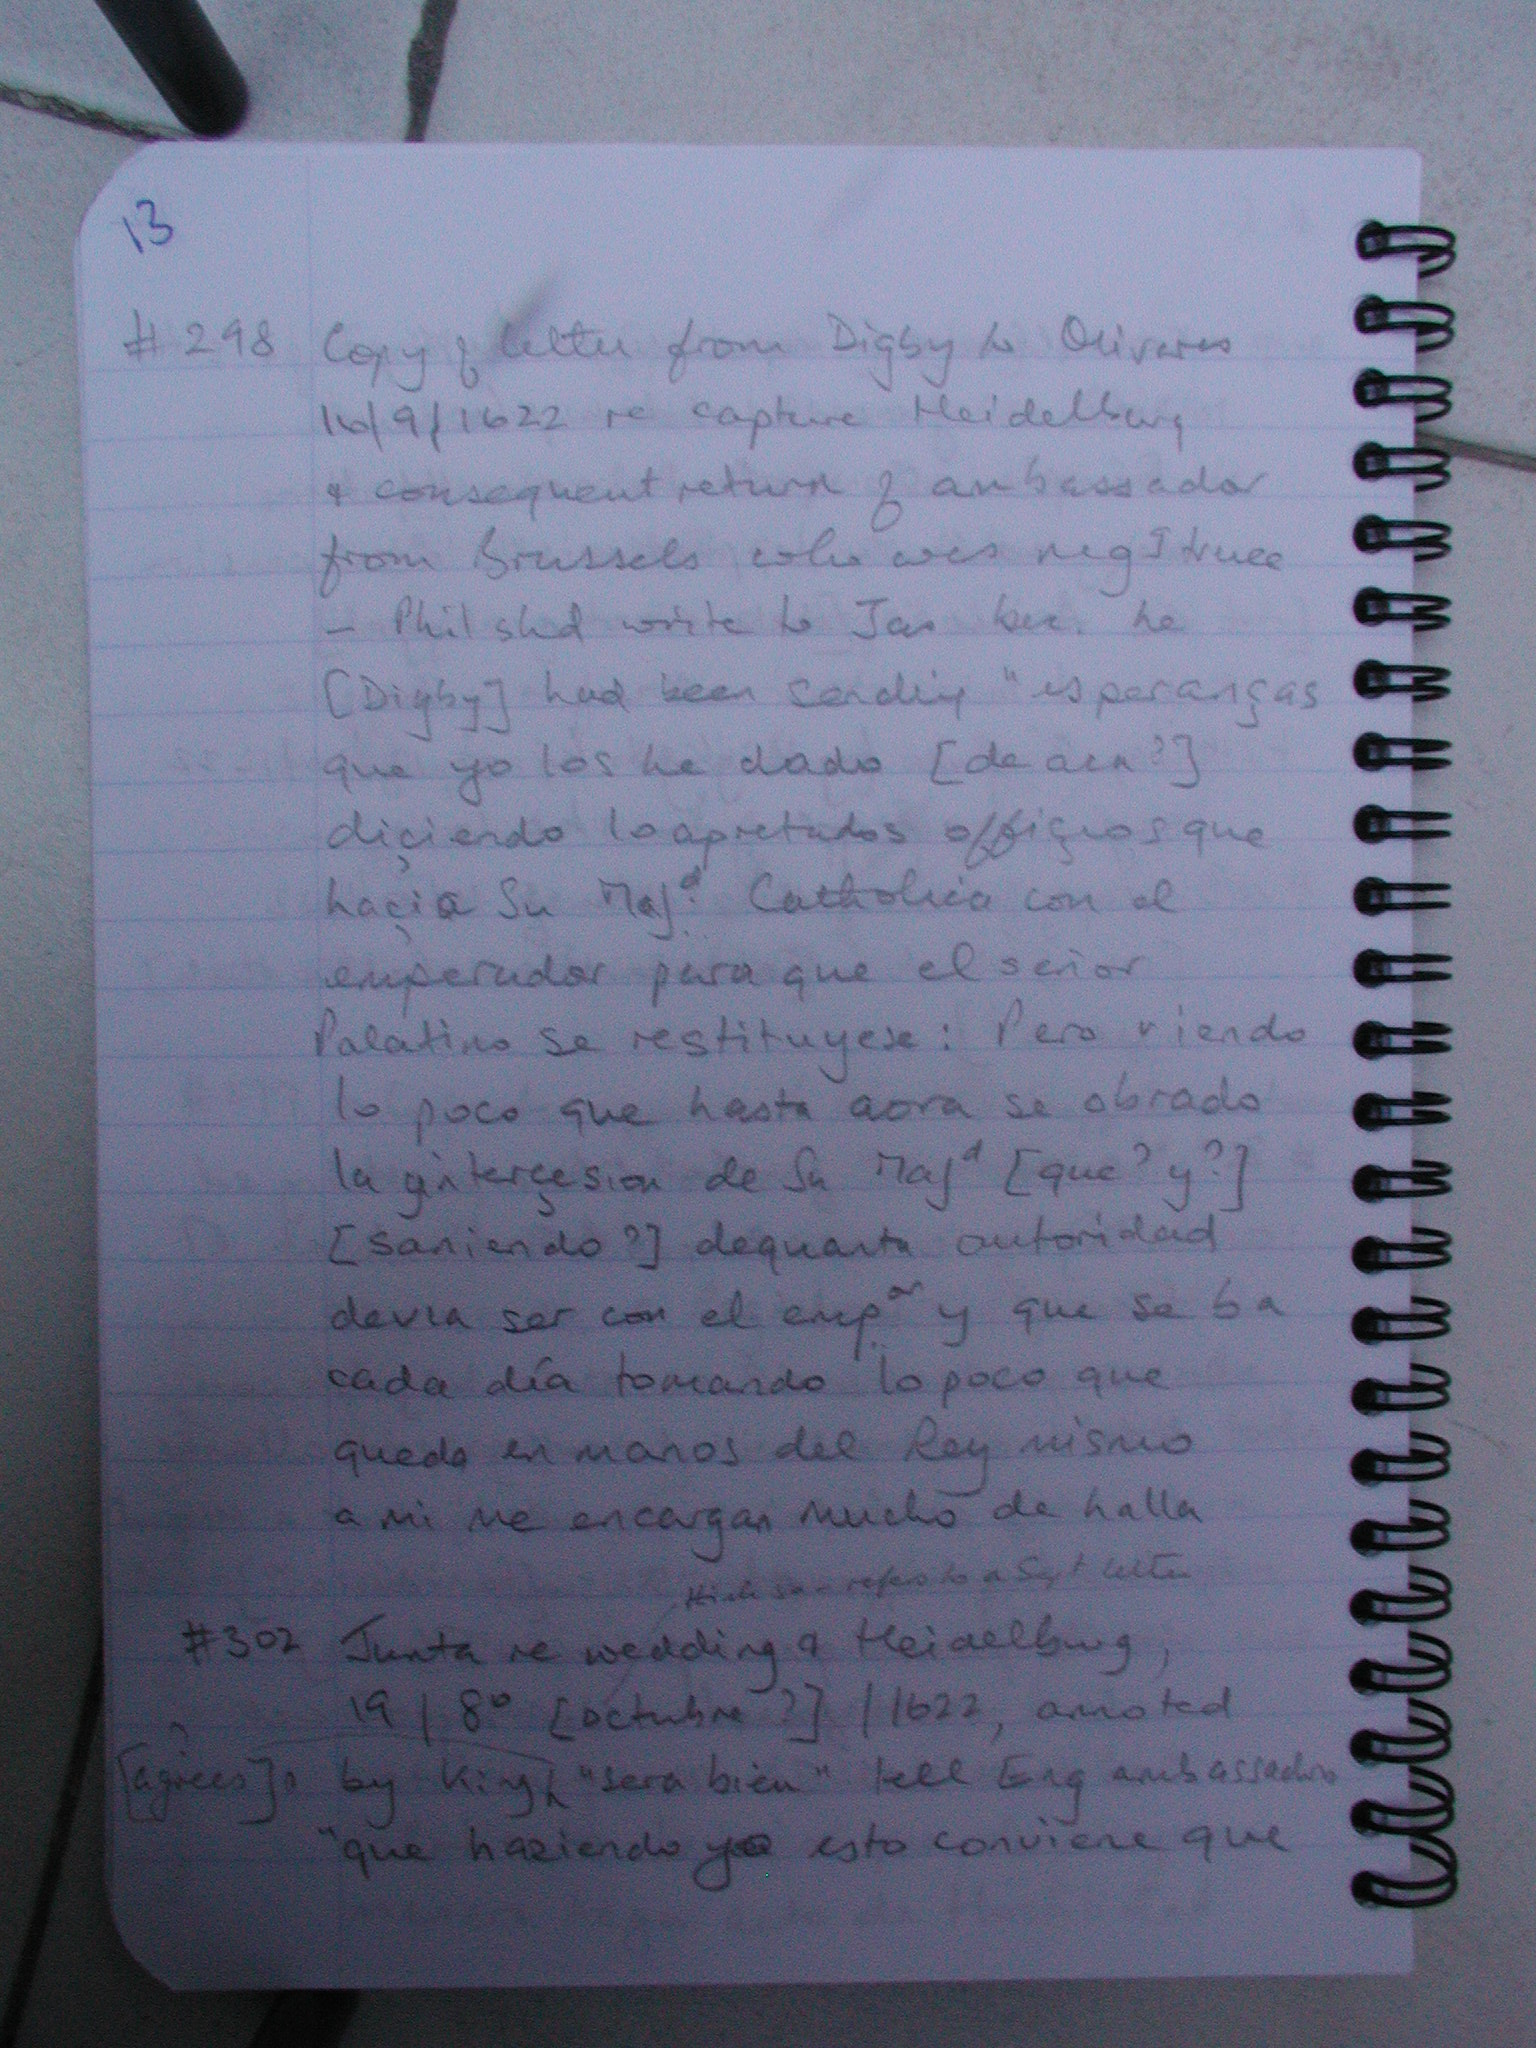 13
#298 Copy of letter from Digby to Olivares
16/9/1622 re capture Heidelburg
& consequent return of ambassador
from Brussels who was neg g truce
- Phil shd write to Jas bec. he
[Digby] had been sending "esperanças
que yo los he dado [de aca?]
diçiendo lo apretados offiçios que
haçia Su Maj.d Catholica con el
emperador para que el señor
Palatino se restituyese: Pero viendo
lo poco que hasta aora se obrado
la interçesion de Su Majd [que? y?]
[saniendo?] de quanta autoridad
devia ser con el emp.or y que se ba
cada día tomando lo poco que
queda en manos del Rey mismo
a mi me encargan mucho de halla
think so - refers to a Sept letter
#302 Junta re wedding & Heidelburg,
19/8o [octubre?]/1622, annoted
[agrees] by King "sera bien" tell Eng ambassador
"que haziendo yo esto conviene que